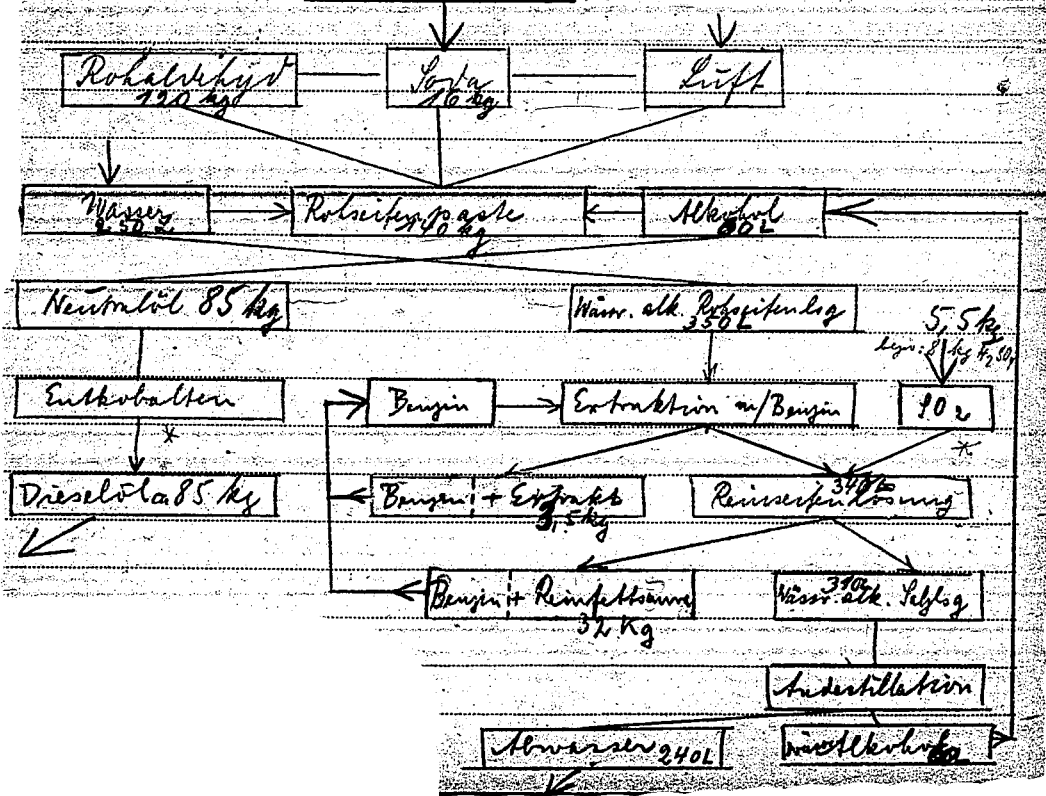 Rohaldehyd
120 kg
Soda
16 kg
Luft
Wasser
250 L
Rohseifenpaste
140 kg
Alkohol
60 L
Neutralöl 85 kg
Wässr. alk. Rohseifenlsg
350 L
5,5 kg
bezw. 8 kg H2SO4
Entkobalten
*
Benzin
Extraktion m/Benzin
SO2
*
Dieselöl ca 85 kg
Benzin + Extrakt
3,5 kg
340 L
Reinseifenlösung
Benzin + Reinfettsäure
32 Kg
310 L
Wässr. alk. Salzlsg
Andestillation
Abwasser 240 L
wässr. Alkohol